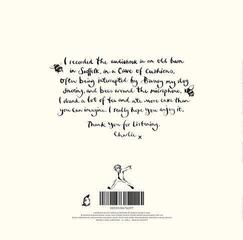 I recorded the audiobook in an old barn
in Suffolk, in a Cave of Cushions,
Often being interrupted by Barney my dog
snoring, and bees around the microphone,
I drank a lot of tea and ate more cake than
you can imagine. I really hope you enjoy it.
Thank you for listening.
Charlie x